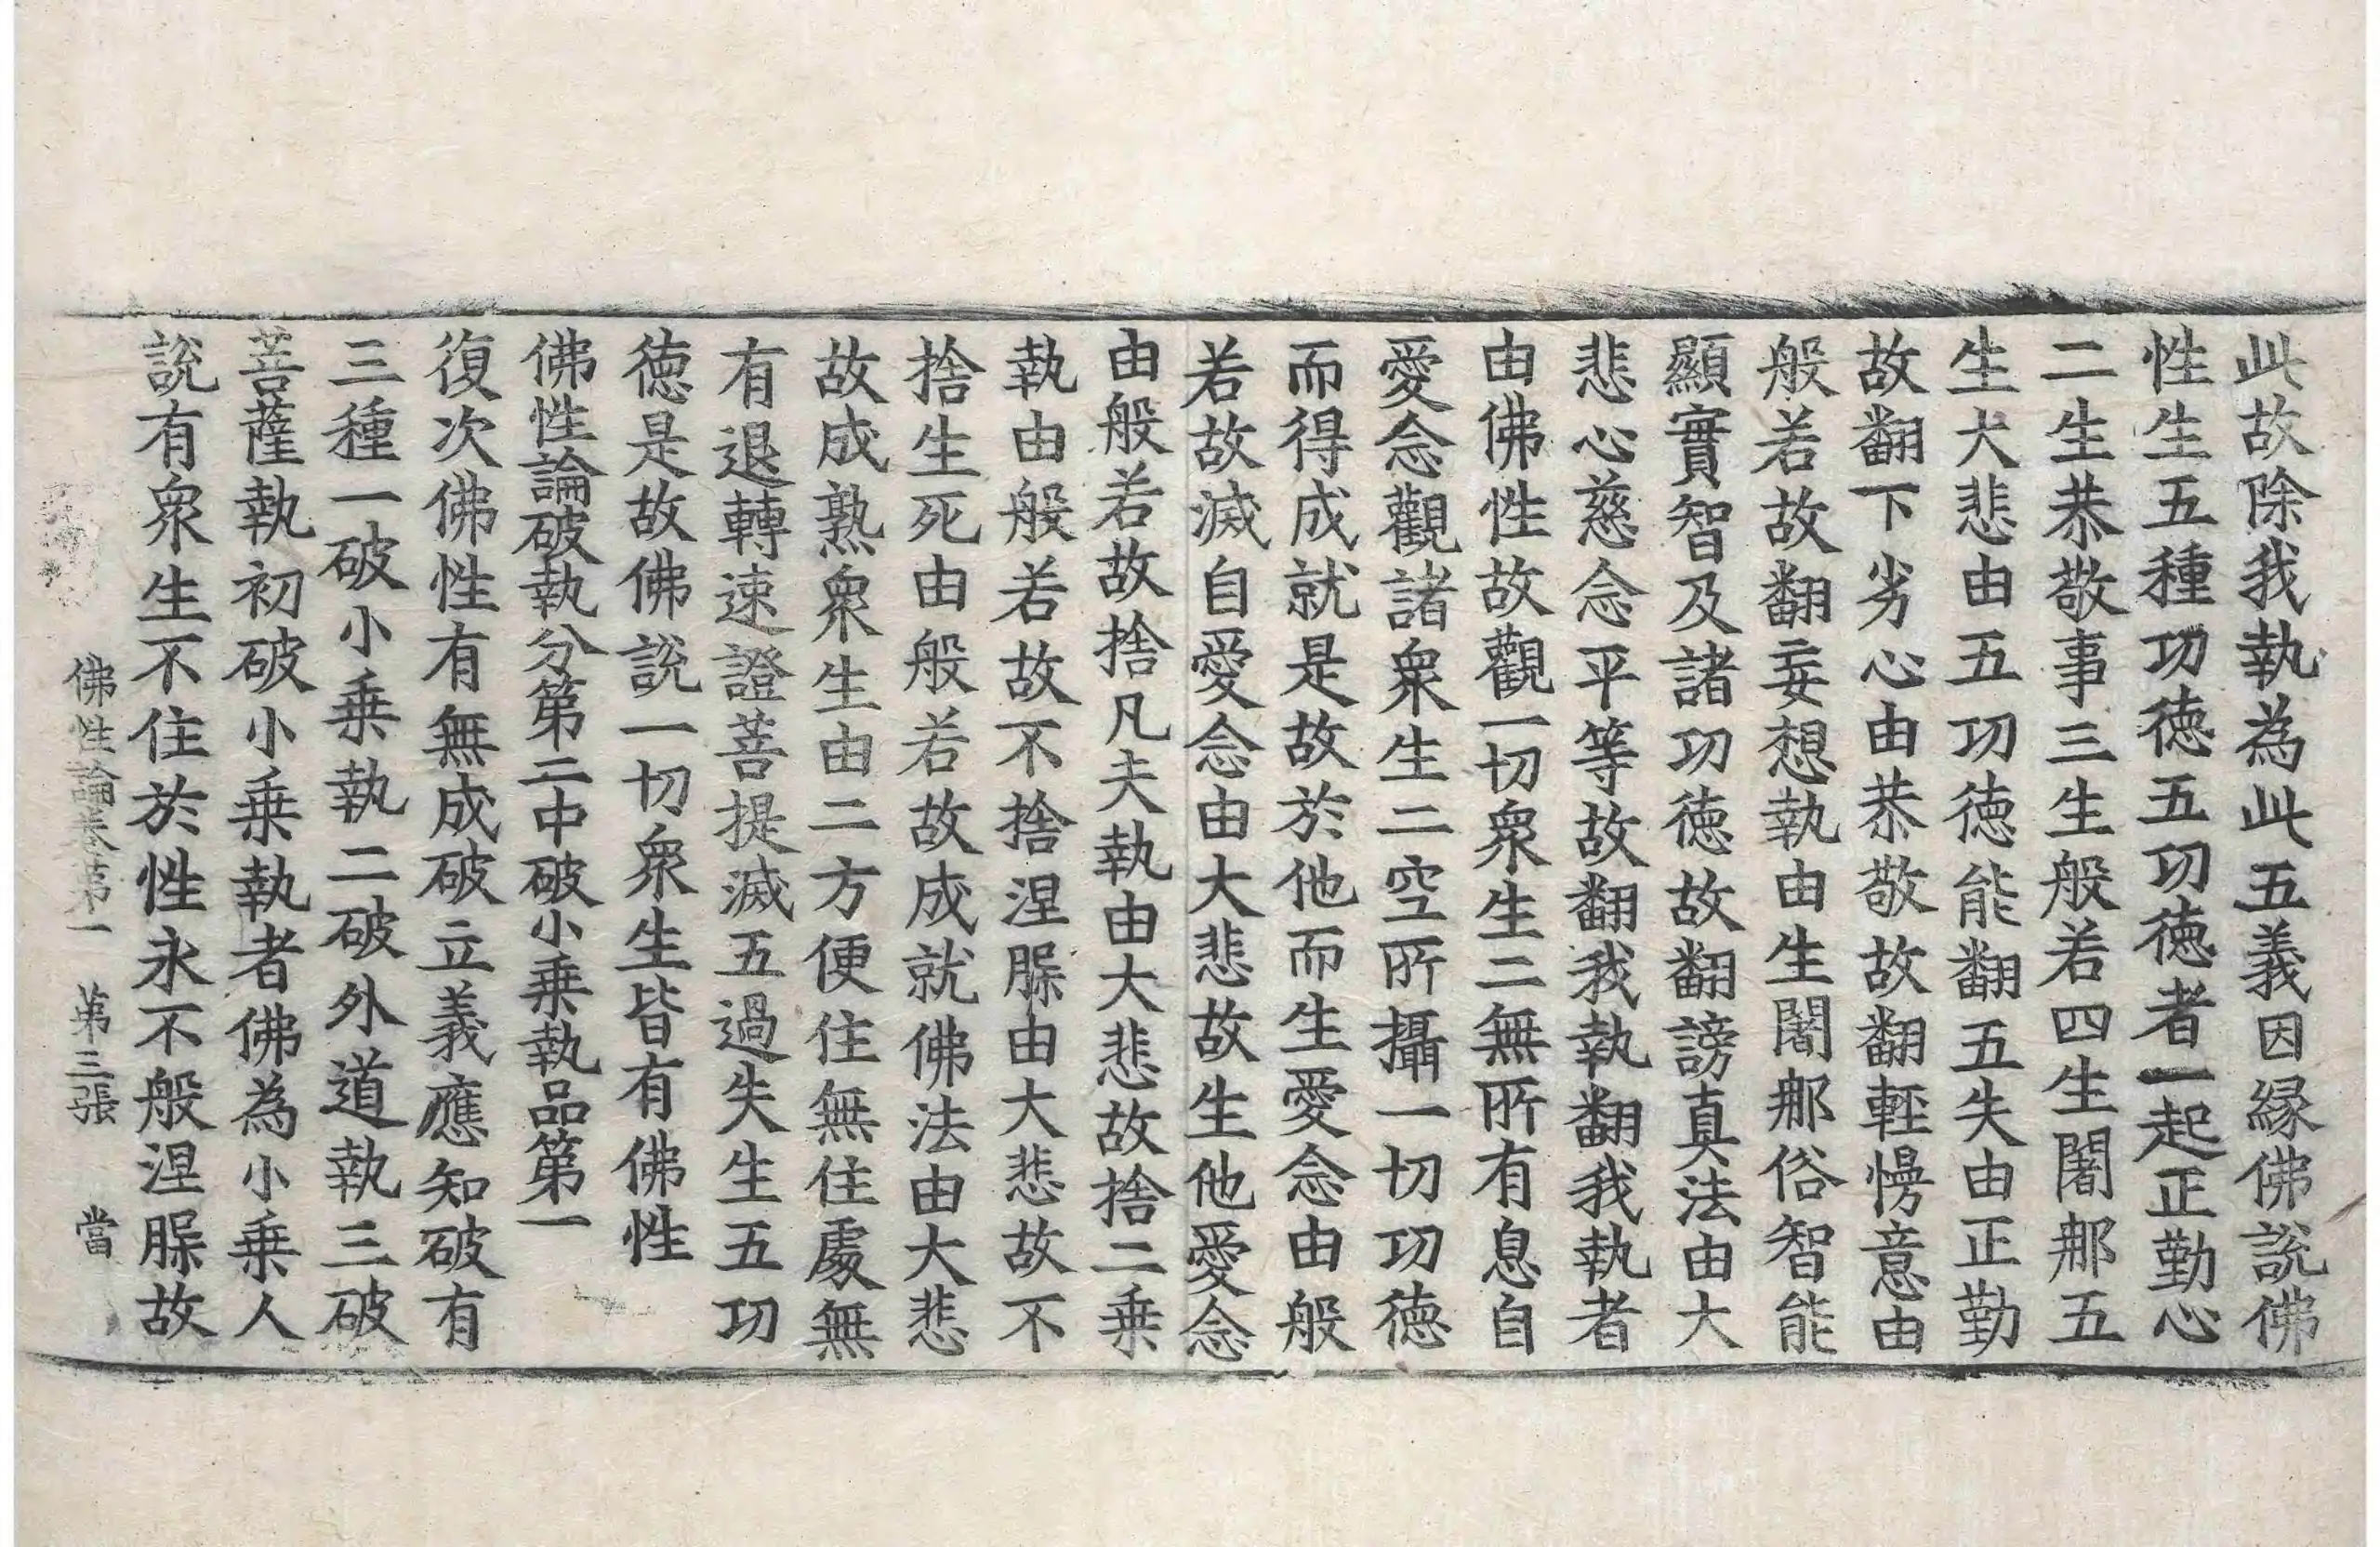 此故除我執為此五義因縁佛說佛
性生五種功徳五功徳者一起正勤心
二生恭敬事三生般若四生闍郍五
生大悲由五功徳能翻五失由正勤
故翻下劣心由恭敬故翻輕慢意由
般若故翻妄想執由生闍郍俗智能
顯實智及諸功徳故翻謗真法由大
悲心慈念平等故翻我執翻我執者
由佛性故觀一切衆生二無所有息自
愛念觀諸衆生二空所攝一切功徳
而得成就是故於他而生愛念由般
若故滅自愛念由大悲故生他愛念
由般若故捨凡夫執由大悲故捨二乗
執由般若故不捨涅槃由大悲故不
捨生死由般若故成就佛法由大悲
故成熟衆生由二方便住無住處無
有退轉速證菩提滅五過失生五功
徳是故佛說一切衆生皆有佛性
佛性論破執分第二中破小乗執品第一
復次佛性有無成破立義應知破有
三種一破小乗執二破外道執三破
菩薩執初破小乗執者佛為小乗人
說有衆生不住於性永不般涅槃故
佛性論卷第一 第三張 當